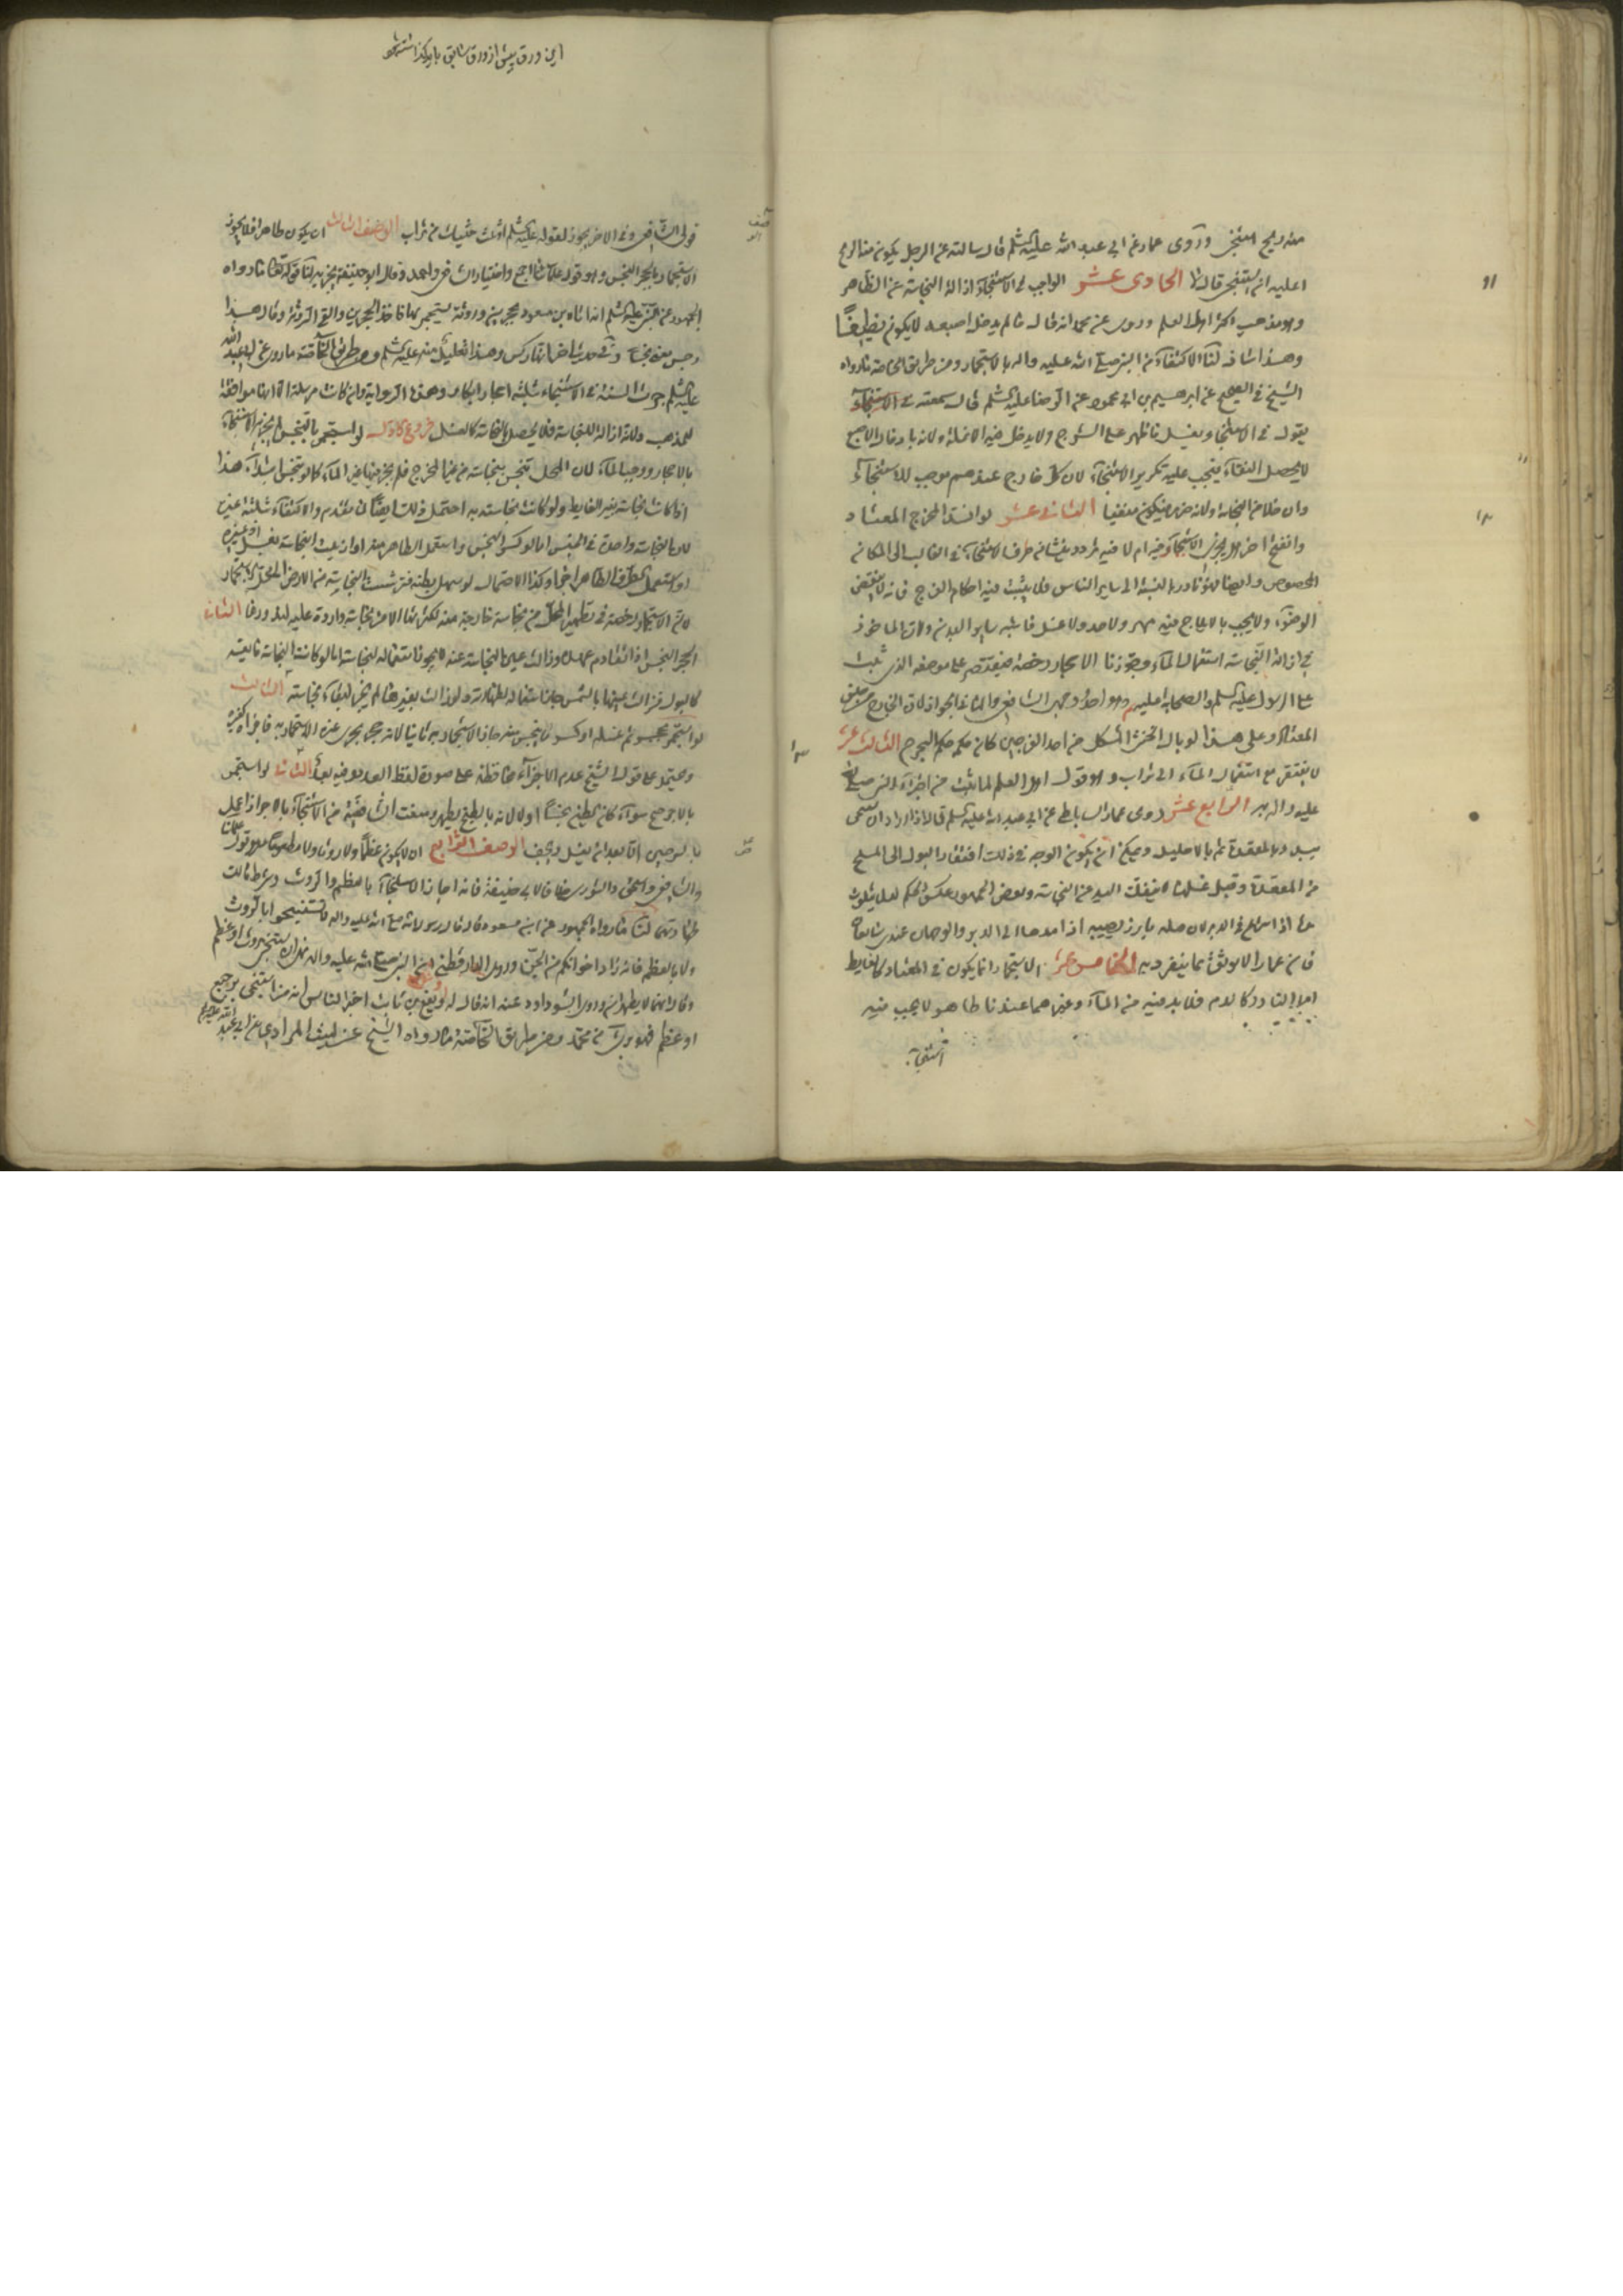 منه ريح استنجى وروى عمار عن ابي عبد الله عليه السلم قال سالته عن الرجل يكون منه الريح
اعليه ان يستنجى قال لا الحادى عشر الواجب فى الاستنجاء ازالة النجاسة عن الظاهر
وهو مذهب اكثر اهل العلم وروى عن محمد انه قال ما لم يدخل اصبعه لا يكون نظيفا
وهذا شاذ لنا الاكتفاء من النبى صلى الله عليه واله بالاستجمار ومن طريق الخاصة ما رواه
الشيخ فى الصحيح عن ابرهيم بن ابى محمود عن الرضا عليه السلم قال سمعته فى الاستنجاء
يقول فى الاستنجاء ويغسل ما ظهر على الشرج ولا يدخل فيه الانملة ولانه بادخال الاصبع
لا يحصل النقاء فيجب عليه تكرير الاستنجاء لان كل خارج عندهم موجب للاستنجاء
وان خلا من النجاسة ولانه ضرر فيكون منفيا الثانى عشر لو انسد المخرج المعتاد
وانفتح اخر هل يجزى الاستجمار فيه ام لا فيه تردد ينشا من صرف الاستنجاء فى الغالب الى المكان
المخصوص وايضا لهو نادر بالنسبة الى ساير الناس فلا يثبت فيه احكام الفرج فانه لا ينقض
الوضوء ولا يجب بالايلاج فيه مهر ولا حد ولا غسل فاشبه ساير البدن ولان الماخوذ
فى ازالة النجاسة استعمال الماء وجوزنا الاحجار رخصة فيقتصر على موضعه الذى ثبت
عن الرسول عليه السلم والصحابة عليه وهو احد وجهى الشافعى والثانى الجواز لان الخارج من جنس
المعتاد وعلى هذا لو بال الخنثى المشكل من احد الفرجين كان حكمه حكم الجرح الثالث عشر
لا يفتقر مع استعمال الماء الى تراب وهو قول اهل العلم لما ثبت من اجزاء النبى صلى الله
عليه واله به الرابع عشر روى عمار الساباطى عن ابى عبد الله عليه السلم قال اذا اراد ان يستنجى
يبدء بالمقعدة ثم بالاحليل ويمكن ان يكون الوجه فى ذلك افتقار البول الى المسح
من المقعدة وقبل غسلها لا ينفك اليد من النجاسة وبعض الجمهور عكس الحكم لئلا يتلوث
يده اذا شرع فى الدبر لان محله بارز يصيبه اذا مدها الى الدبر والوجهان عندى سايغان
فان عمار لا يوثق بما ينفرد به الخامس عشر الاستجمار انما يكون فى المعتاد كالغايط
اما النادر كالدم فلا بد فيه من الماء وغيرهما عندنا طاهر لا يجب فيه
استنجاء
اين ورق پيش از ورق سابق بايد گذاشته شود
قولى الشافعى وفى الاخر يجوز لقوله عليه السلم او ثلث حثيات من تراب الوصف الثالث ان يكون طاهرا فلا يجوز
الاستجمار بالحجر النجس وهو قول علمائنا اجمع واختيار الشافعى واحمد وقال ابو حنيفة يجزيه لنا قوله تعالى ما رواه
الجمهور عن النبى عليه السلم انه اتاه ابن مسعود بحجرين وروثة يستجمر بها فاخذ الحجرين والقى الروثة وقال هذا
رجس يعنى نجسا وفى حديث اخر انها ركس وهذا تعليل منه عليه السلم ومن طريق الخاصة ما روى عن ابى عبد الله
عليه السلم جرت السنة فى الاستنجاء بثلثة احجار ابكار وهذه الرواية وان كانت مرسلة الا انها موافقة
للمذهب ولانه ازالة للنجاسة فلا يحصل بالنجاسة كالغسل فروع الاول لو استجمر بالنجس لم يجزه الاستنجاء
بالاحجار ووجب الماء لان المحل تنجس بنجاسة من غير المخرج فلم يجز فيها غير الماء كما لو تنجس ابتداء هذا
اذا كانت نجاسته بغير الغايط ولو كانت نجاسته به احتمل ذلك ايضا لما تقدم والاكتفاء بثلثة غيره
لان النجاسة واحدة فى الجنس اما لو كسر النجس واستعمل الطاهر منه او ازيلت النجاسة بغسل او غيره
او استعمل الطرف الطاهر اجزا وكذا الاحتمال لو سهل بطنه فترششت النجاسة من الارض الى محل الاستنجاء
لان الاستجمار رخصة فى تطهير المحل من نجاسة خارجة منه لكثرتها لا من نجاسة واردة عليه لندورها الثانى
الحجر النجس اذا تقادم عهده وزالت عين النجاسة عنه لا يجوز استعماله لنجاسته اما لو كانت النجاسة مايعة
كالبول فزالت عينها بالشمس جاز استعماله لطهارته ولو زالت بغيرها لم يجز لبقاء نجاسته الثالث
لو استجمر بحجر ثم غسله او كسر ما تنجس منه جاز الاستجمار به ثانيا لانه حجر يجرى غيره الاستجمار به فاجزا كغيره
ويحتمل على قول الشيخ عدم الاجزاء محافظة على صورة لفظ العدد وفيه بعد الثانى لو استجمر
بالاجر صح سواء كان الطين نجسا او لا لانه بالطبخ يطهر ومنعت الشافعية من الاستنجاء بالاجر اذا عمل
بالسرجين اما بعد ان يغسل ويجف الوصف الرابع ان لا يكون عظما ولا روثا ولا مطعوما وهو قول علمائنا
والشافعى واسحق والثورى خلافا لابى حنيفة فانه اجاز الاستنجاء بالعظم والروث وشرط مالك
طهارتهما لنا ما رواه الجمهور عن ابن مسعود قال قال رسول الله صلى الله عليه واله لا تستنجوا بالروث
ولا بالعظم فانه زاد اخوانكم من الجن وروى الدارقطنى ان النبى صلى الله عليه واله نهى ان يستنجى بروث او عظم
وقال انهما لا يطهران وروى ابو داود عنه انه قال لرويفع بن ثابت اخبر الناس انه من استنجى برجيع
او عظم فهو برئ من محمد ومن طريق الخاصة ما رواه الشيخ عن ليث المرادى عن ابى عبد الله عليه السلم